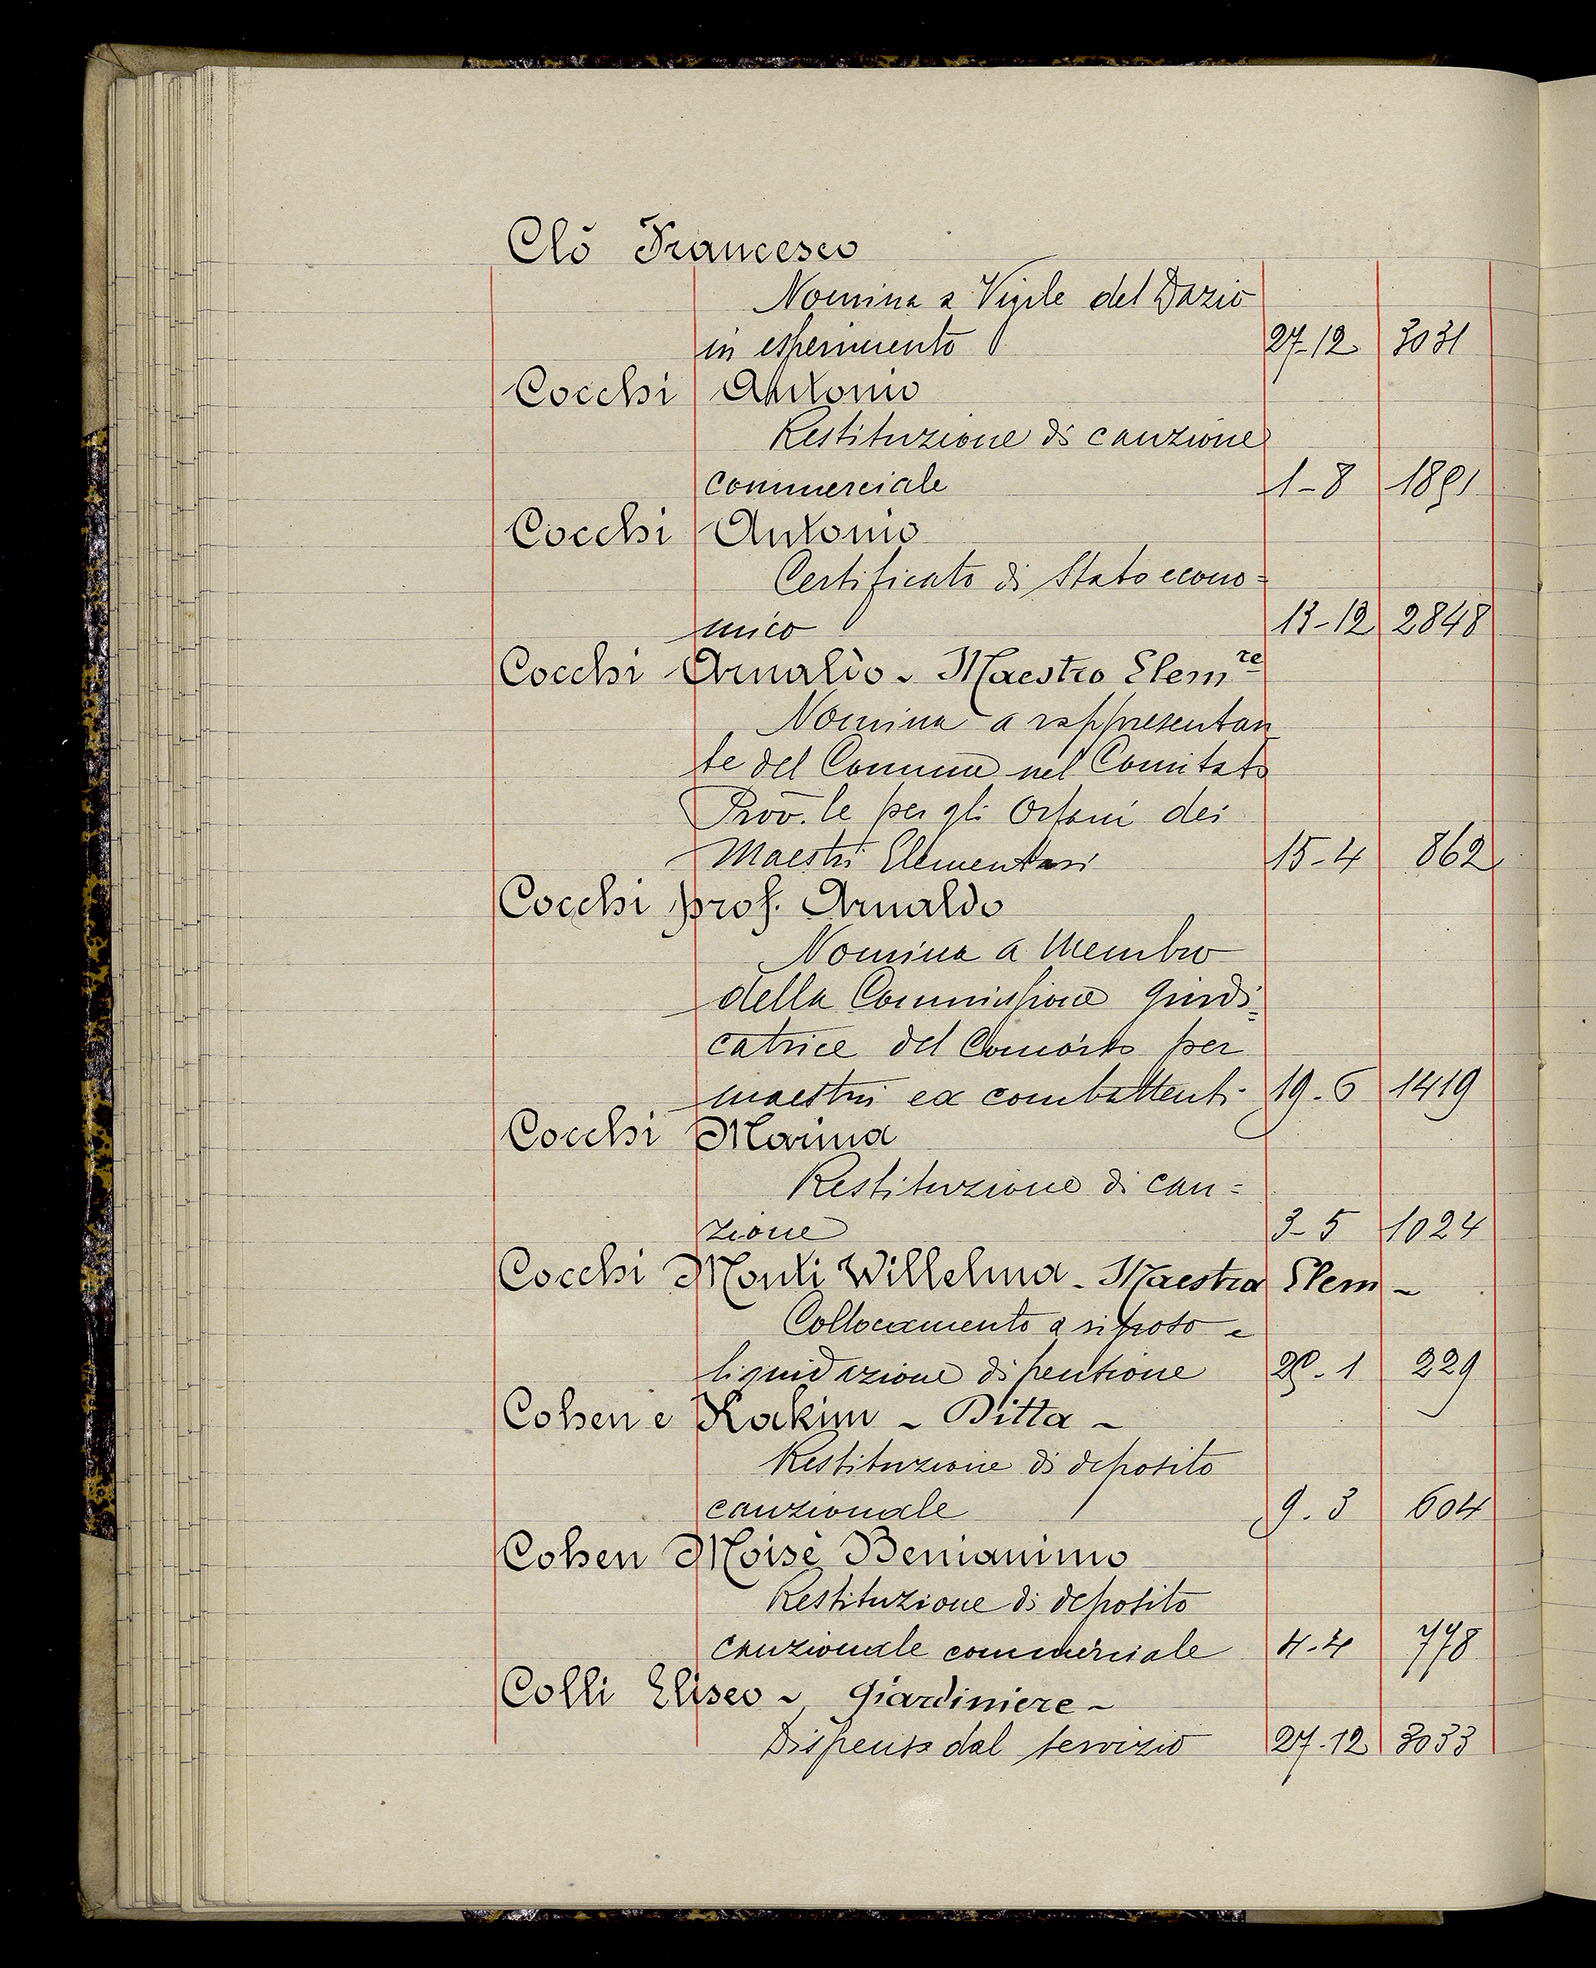 Clò Francesco
Nomina a Vigile del Dazio
in esperimento 27-12 3031
Cocchi Antonio
Restituzione di cauzione
commerciale 1-8 1891
Cocchi Antonio
Certificato di Stato econo=
mico 13-12 2848
Cocchi Arnaldo - Maestro Elem.re
Nomina a rappresentan
te del Comune nel Comitato
Prov.le per gli Orfani dei
Maestri Elementari 15-4 862
Cocchi prof. Arnaldo
Nomina a Membro
della Commissione giudi=
catrice del Concorso per
maestri ex combattenti 19-6 1419
Cocchi Marina
Restituzione di cau=
zione 3-5 1024
Cocchi Monti Willelma - Maestra Elem -
Collocamento a riposo e
liquidazione di pensione 1 229
Cohen e - Ditta -
Restituzione di deposito
cauzionale 9.3 604
Cohen Moisè Benianimo
Restituzione di deposito
cauzionale commerciale 4-4 778
Colli Eliseo - Giardiniere -
Dispensa dal servizio 27-12 3033